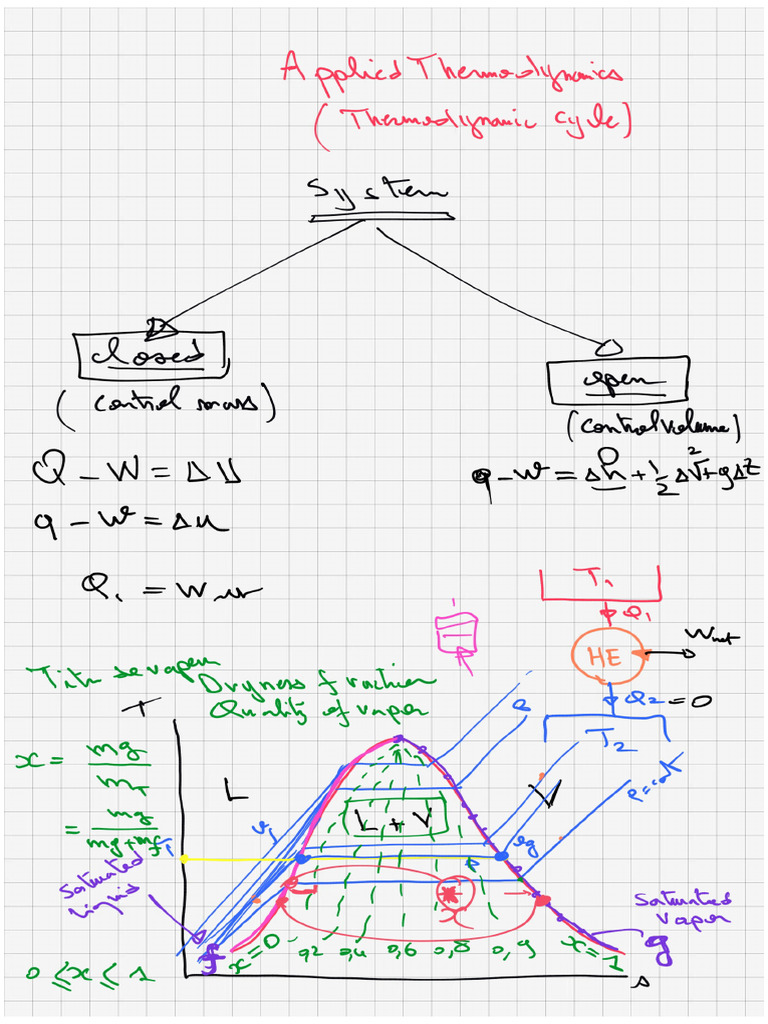 Applied Thermodynamics
(Thermodynamic cycle)
System
closed
open
(control mass)
(control volume)
Q - W = ΔU
q - w = Δh + 1/2 ΔV² + gΔz
q - w = Δu
Q₁ = W
T₁
Q₁
HE
Wnet
Q₂ = 0
T₂
Titre de vapeur
Dryness fraction
Quality of vapor
T
x = mg / mT
= mg / mg+mf
0 ≤ x ≤ 1
L
L + V
V
Saturated
liquid
f
Saturated
vapor
g
x=0 0,2 0,4 0,6 0,8 0,9 x=1
s